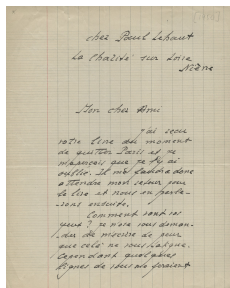 chez Paul Lehaut
La Charité sur Loire
Nièvre
Mon cher Ami
j'ai reçu
votre livre au moment
de quitter Paris et ne
que je l'y ai
oublié. Il me faudra donc
attendre mon retour pour
le lire et nous en parle-
rons ensuite.
Comment sont vos
yeux? je n'ose vous deman-
der de m'écrire de peur
que cela ne vous fatigue.
Cependant quelques
lignes de vous me feraient